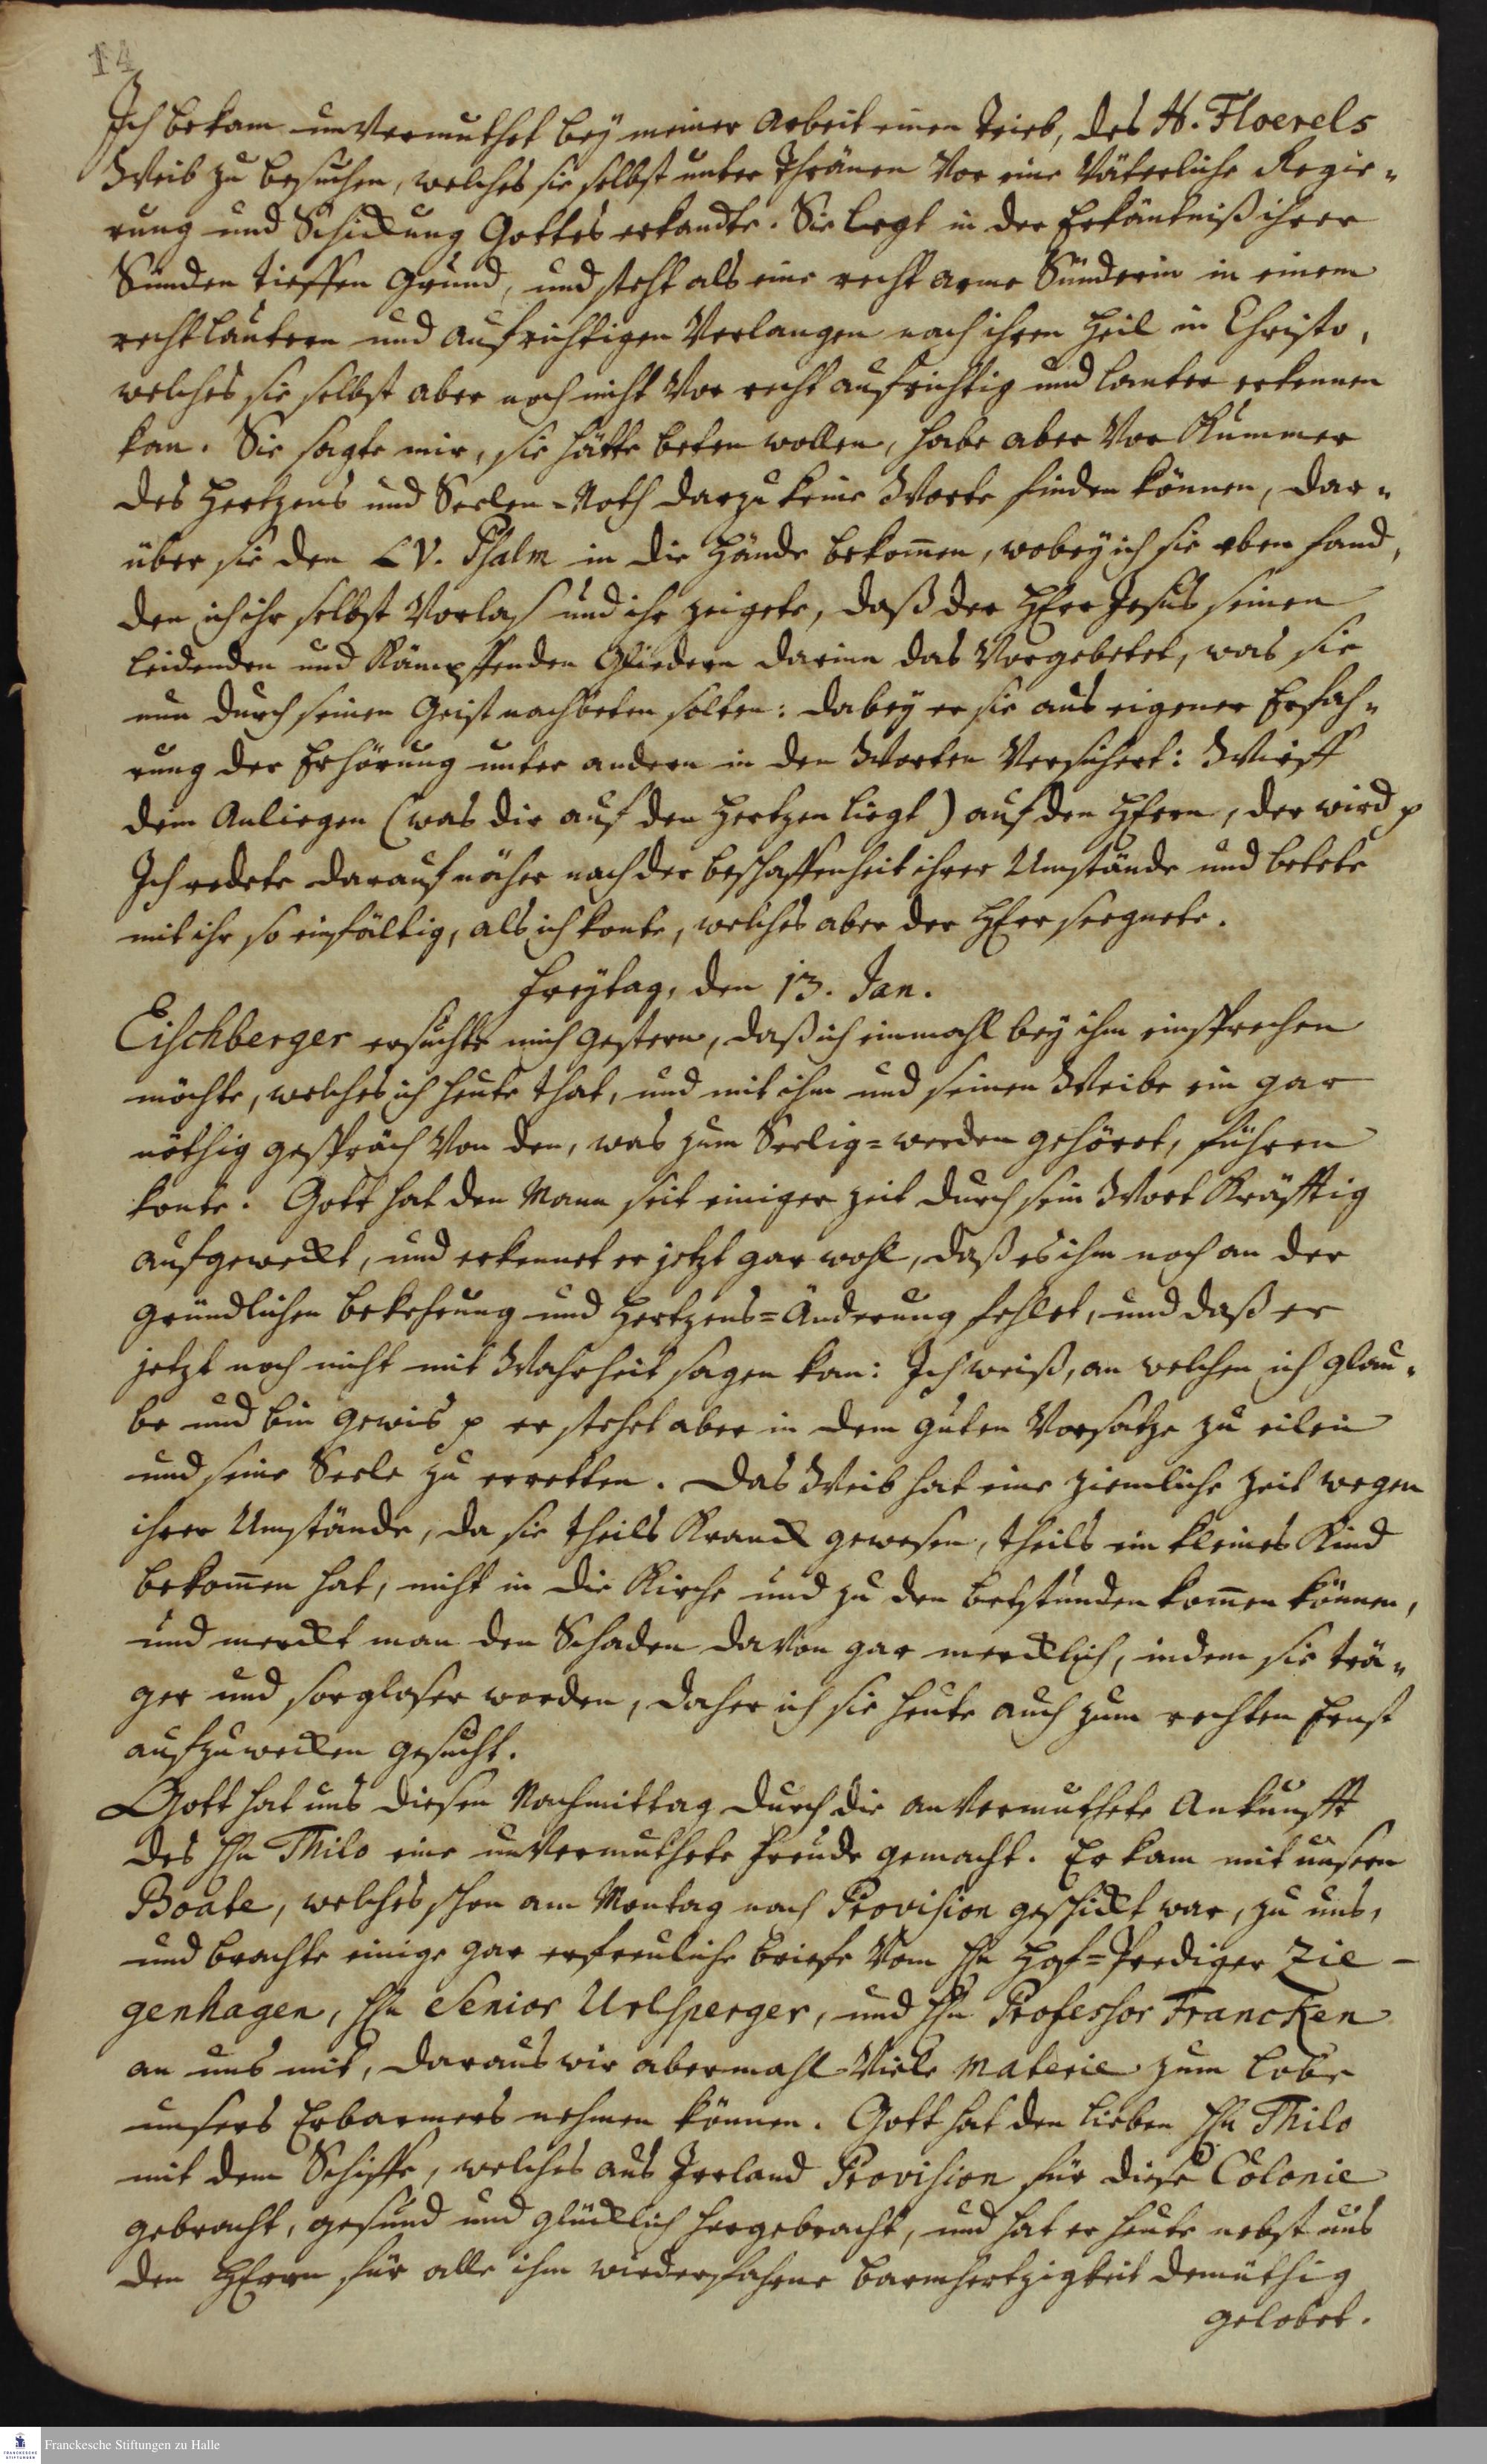 14
Ich bekam unvermuthet bey meiner Arbeit einen Trieb, des H. Floerels
Weib zu besuchen, welches sie selbst unter Thränen vor eine Väterliche Regie-
rung und Schickung Gottes erkandte. Sie legt in der Erkäntniß ihrer
Sünden tieffen Grund, und steht als eine recht arme Sünderin in einem
recht lautern und aufrichtigen Verlangen nach ihren Heil in Christo,
welches sie selbst aber noch nicht vor recht aufrichtig und lauter erkennen
kan. Sie sagte mir, sie hätte beten wollen, habe aber vor Kummer
des Hertzens und Seelen-Noth darzu keine Worte finden können, dar-
über sie den LV. Psalm in die Hände bekom̄en, wobey ich sie eben fand,
den ich ihr selbst vorlas und ihr zeigete, daß der HErr Jesus seinen
leidenden und Kämpffenden Gliedern darinn das vorgebetet, was sie
nun durch seinen Geist nachbeten solten: dabey er sie aus eigener Erfah-
rung der Erhörung unter andern in den Worten versichert: Wirff
dein Anliegen (was dir auf den Hertzen liegt) auf den HErrn, der wird p
Ich redete darauf näher nach der Beschaffenheit ihrer Umstände und betete
mit ihr so einfältig, als ich konte, welches aber der HErr seegnete.
Freytag, den 13. Jan.
Eischberger ersuchte mich gestern, daß ich einmahl bey ihm einsprechen
möchte, welches ich heute that, und mit ihm und seinen Weibe ein gar
nöthig Gespräch von den, was zum Seelig-werden gehöret, führen
konte. Gott hat den Mann seit einiger Zeit durch sein Wort Kräfftig
aufgeweckt, und erkennet er jetzt gar wohl, daß es ihm noch an der
gründlichen Bekehrung und Hertzens-Änderung fehlet, und daß er
jetzt noch nicht mit Wahrheit sagen kan: Ich weiß, an welchen ich glau-
be und bin gewis p er stehet aber in dem guten Vorsatze zu eilen
und seine Seele zu erretten. Das Weib hat eine ziemliche Zeit wegen
ihrer Umstände, da sie theils Kranck gewesen, theils ein kleines Kind
bekom̄en hat, nicht in die Kirche und zu den Betstunden kom̄en können,
und merckt man den Schaden davon gar mercklich, indem sie trä-
ger und sorgloser worden, daher ich sie heute auch zum rechten Ernst
aufzuwecken gesucht.
Gott hat uns diesen Nachmittag durch die unvermuthete Ankunfft
des Hn Thilo eine unvermuthete Freude gemacht. Er kam mit unsern
Boate, welches schon am Montag nach Provision geschickt war, zu uns,
und brachte einige gar erfreuliche Briefe vom Hn Hof-Prediger Zie-
genhagen, Hn Senior Urlsperger, und Hn Professor Francken
an uns mit, daraus wir abermahl viele Materie zum Lobe
unsers Erbarmers nehmen können. Gott hat den lieben Hn Thilo
mit dem Schiffe, welches aus Irrland Provision für diese Colonie
gebracht, gesund und glücklich hergebracht, und hat er heute nebst uns
den HErrn für alle ihm wiederfahrne Barmhertzigkeit demüthig
gelobet.
Franckesche Stiftungen zu Halle